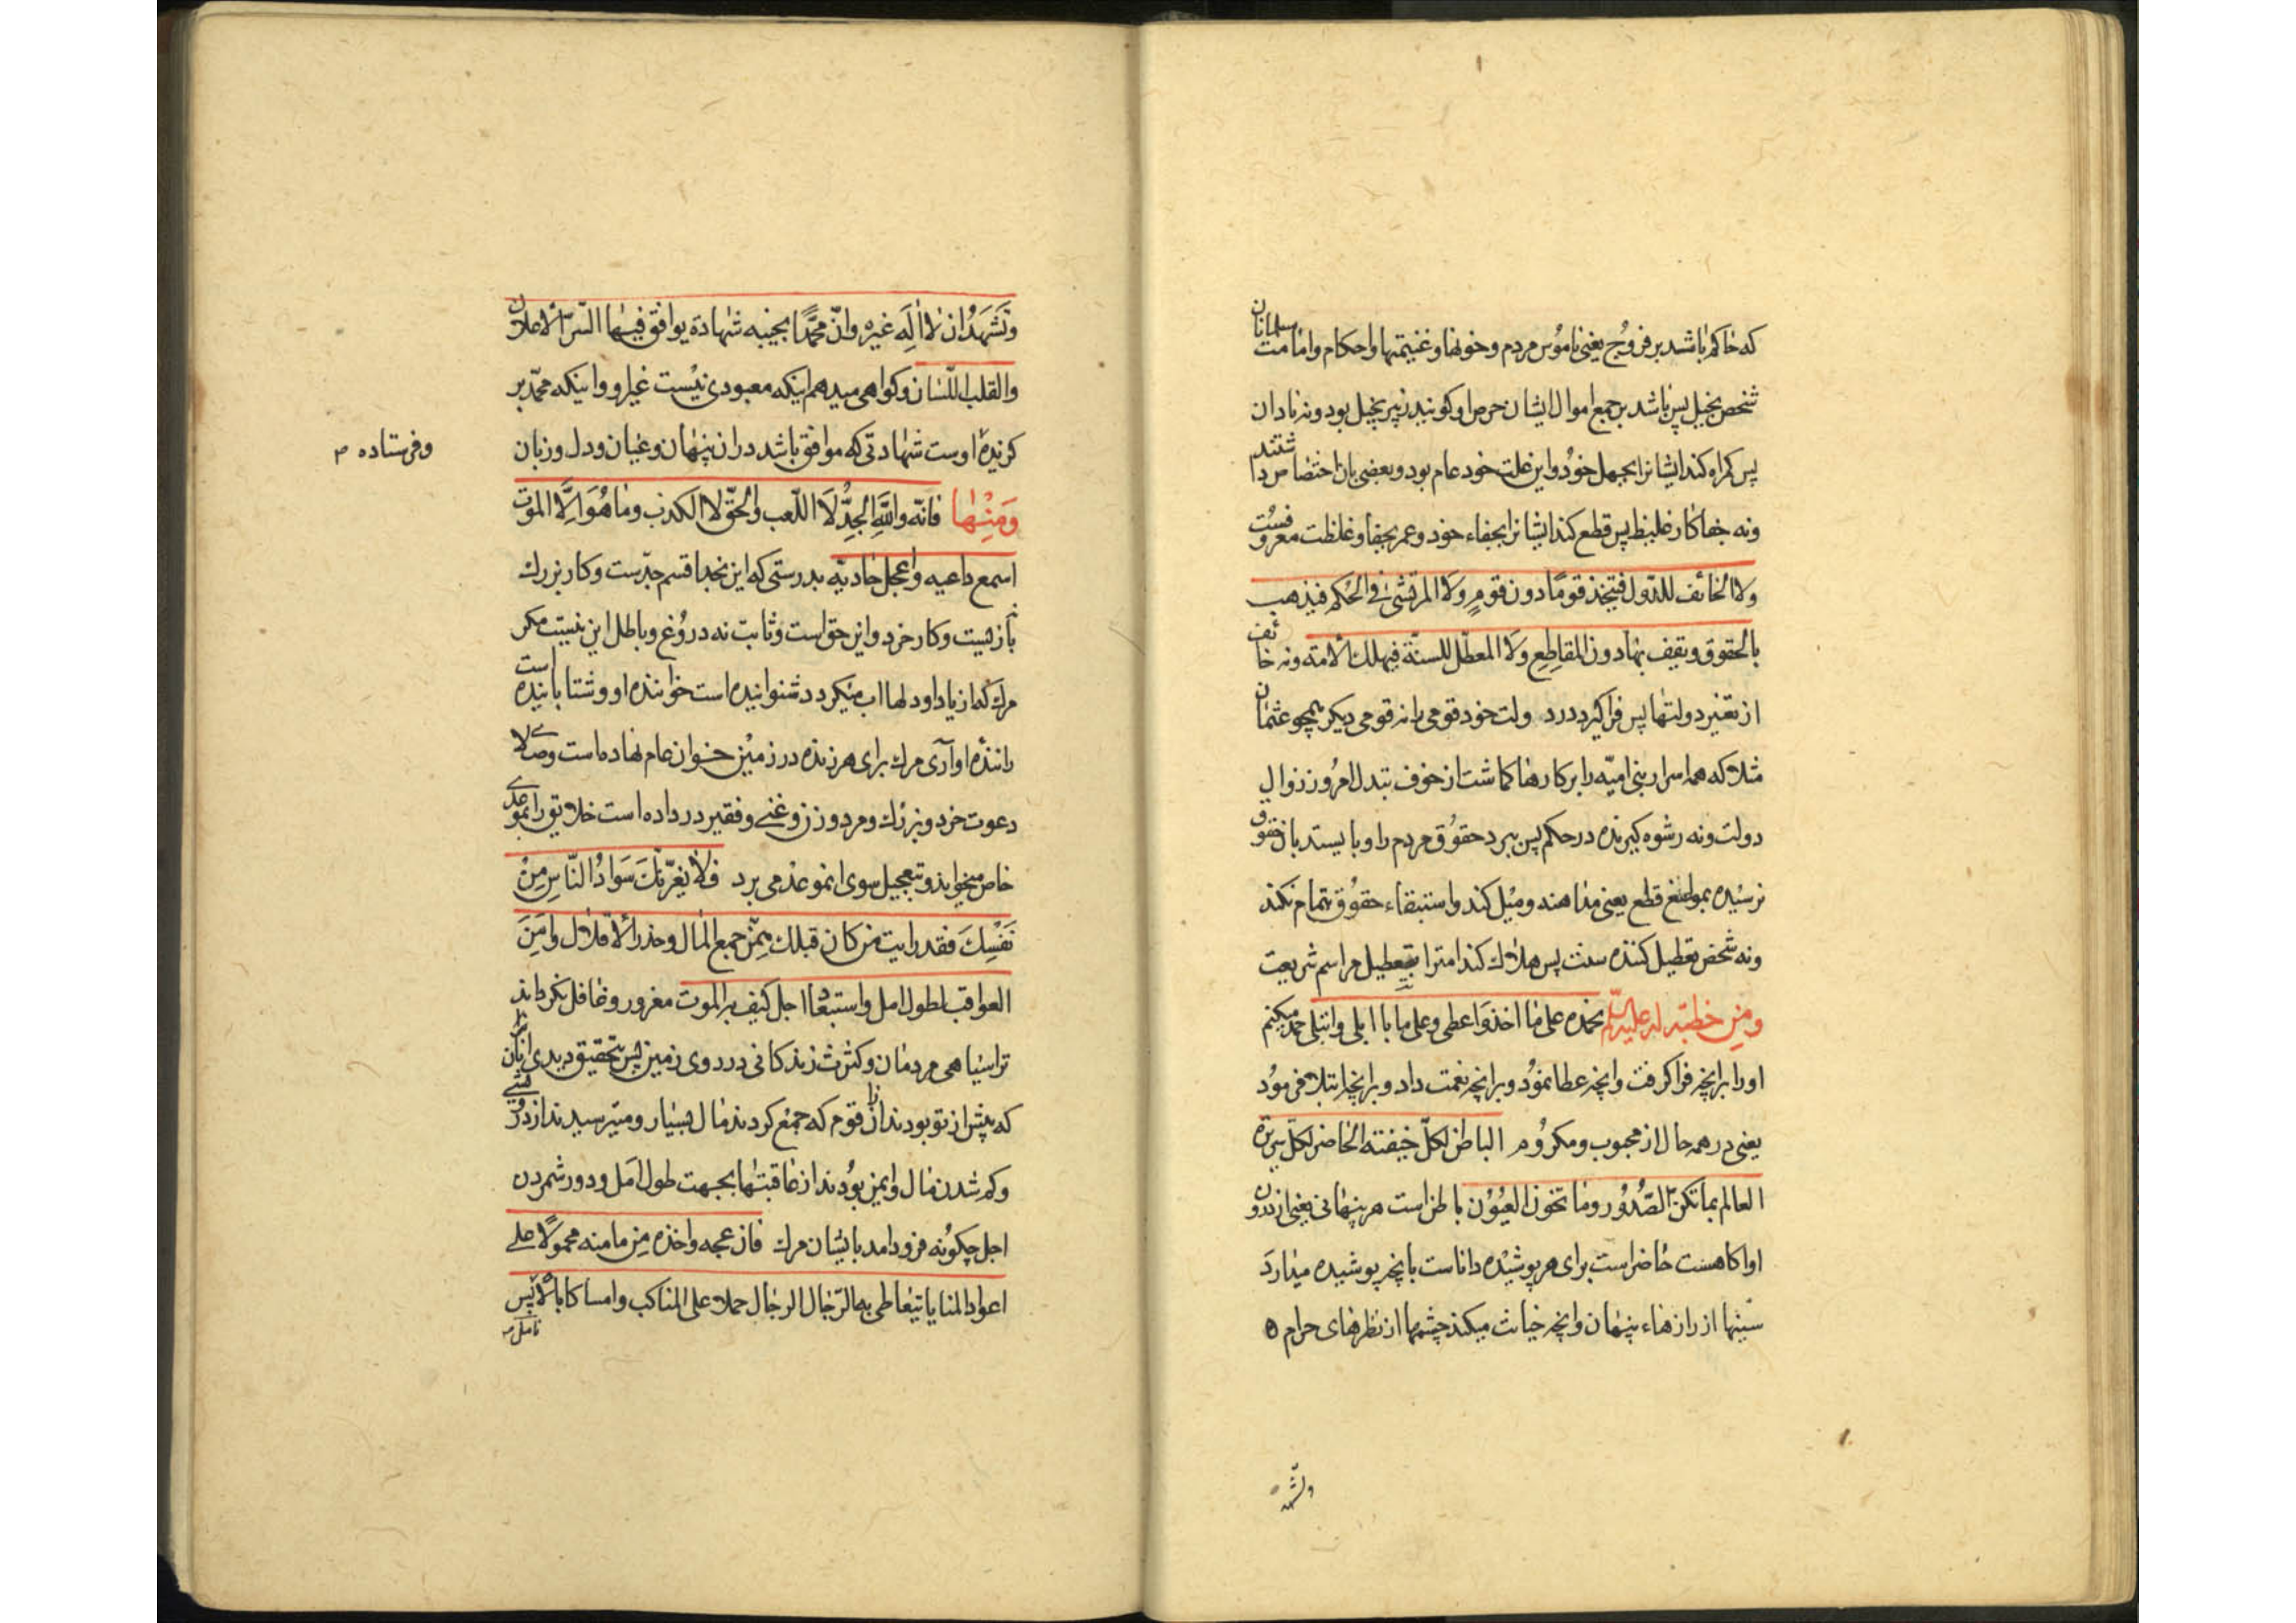 که حاکم باشد بر فروج یعنی ناموس مردم و خونها و غنیمتها و احکام و امامت مسلمانان
شخص بخیل پس باشد بر جمع اموال ایشان حرص او و کویند زبیر بخیل بود و نه نادان
پس کمراه کند ایشانرا بجهل خود و این علت خود عام بود و بعضی بان اختصاص داشتند
و نه جفاکار غلیظ پس قطع کند ایشانرا بجفاء خود و عمر بجفا و غلظت معروفست
ولا الخائف للدول فیتخذ قومًا دون قومٍ ولا المرتشی فی الحکم فیذهب
بالحقوق و یقف بها دون المقاطع ولا المعطّل للسنّة فیهلك الامة و نه خائف
از تغیر دولتها پس فراکیرد در دولت خود قومی را نه قومی دیکر همچو عثمان
مثلا که همه اسرار بنی امیّه را بر کارها کماشت از خوف تبدل امور و زوال
دولت و نه رشوه کیرنده در حکم پس ببرد حقوق مردم را و بایستد بان حقوق
نرسیده بمواضع قطع یعنی مداهنه و میل کند و استیفاء حقوق تمام نکند
و نه شخص تعطیل کننده سنت پس هلاك کند امترا بتعطیل مراسم شریعت
ومن خطبة له علیه السلم نحمده علی ما اخذ و اعطی و علی ما ابلی و ابتلی حمد میکنم
اورا بر انچه فرا کرفت و انچه عطا نمود و بر انچه نعمت داد و بر انچه ابتلا فرمود
یعنی در همه حال از محبوب و مکروه الباطن لکلّ خفیّة الحاضر لکلّ سریرة
العالم بما تکنّ الصّدور وما تخون العیون باطن است هر پنهانی یعنی از درون
او اکاهست حاضر است برای هر پوشیده داناست بانچه پوشیده میدارد
سینها از رازهاء پنهان و انچه خیانت میکند چشمها از نظرهای حرام
ونشهد
ونشهد ان لا اله غیره وانّ محمّدًا نجیبه شهادة یوافق فیها السّرّ الاعلان
والقلب اللّسان و کواهی میدهم اینکه معبودی نیست غیر او و اینکه محمّد بر
کزیدهٔ اوست شهادتی که موافق باشد در ان پنهان و عیان و دل و زبان
وفرستاده
ومنها فانّه والله الجدّ لا اللّعب والحقّ لا الکذب وما هو الّا الموت
اسمع داعیه واعجل حادیه بدرستی که این بخدا قسم جدّست و کار بزرك
بازی نیست و کار خرد و این حق است و ثابت نه دروغ و باطل این نیست مکر
مرك که از یاد او دلها اب میکردد شنوانیده است خواننده او و شتابانیده است
رانندهٔ او آری مرك برای هر زنده در زمین خوان عام نهاده است و صلای
دعوت خرد و بزرك و مرد و زن و غنی و فقیر در داده است خلایق را بموعدی
خاص میخواند و بتعجیل سوی ان موعد می برد فلا یغرّنّك سواد النّاس من
نفسك فقد رایت من کان قبلك ممّن جمع المال وحذر الاقلال وامن
العواقب لطول امل واستبعاد اجل کیف نزل به الموت مغرور و غافل نکرداند
ترا سیاهی مردمان و کثرت زندکانی در روی زمین پس بتحقیق دیدی انان را
که پیش از تو بودند از ان قوم که جمع کردند مال بسیار و میترسیدند از درویشی
و کم شدن مال و ایمن بودند از عاقبتها بجهت طول امل و دور شمردن
اجل چکونه فرود امد بایشان مرك فازعجه واخذه من مامنه محمولًا علی
اعواد المنایا یتعاطی به الرّجال الرجال حملا علی المناکب وامساکا بالانامل پس